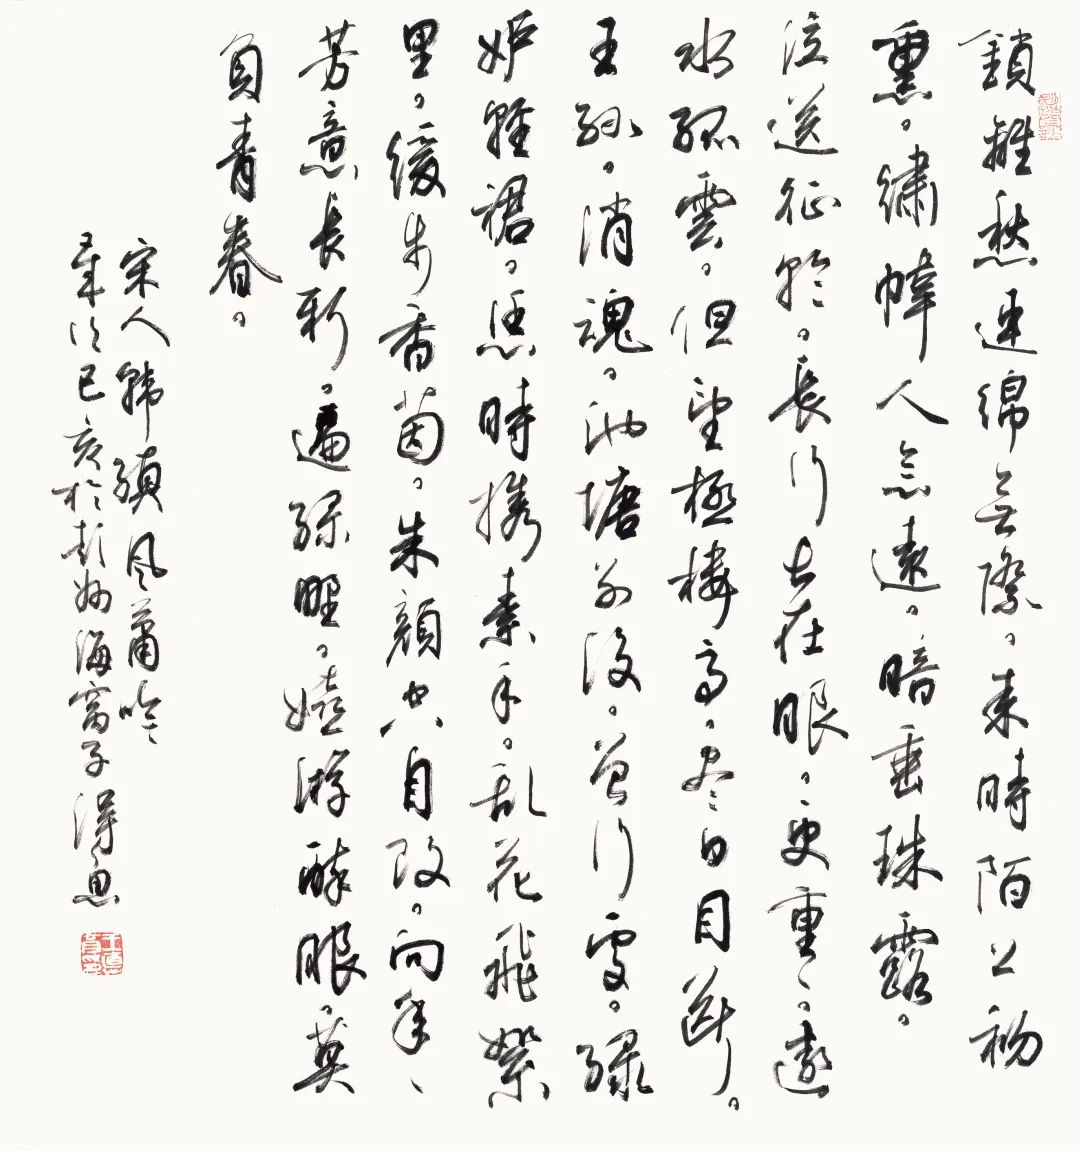 鎖離愁連綿無際。来時陌上初
熏。繡幃人念遠。暗垂珠露。
泣送征輪。長行長在眼。更重重。遠
水孤雲。但望極樓高。尽日目断。
王孫。消魂。池塘别後。曾行處。緑
妒輕裙。恁時携素手。乱花飛絮
里。緩步香茵。朱顔空自改。向年年
芳意長新。遍緑野。嬉游醉眼。莫
負青春。
宋人韓縝风蕭吟
歲次己亥於彭州海窩子得魚